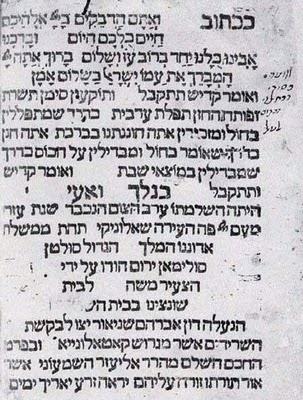 ככתוב ואתם הדבקים ביי' אלהיכם
חיים כלכם היום וברכנו
אבינו כלנו יחד ברוב עוז ושלום ברוך אתה יי'
המברך את עמו ישראל בשלום אמן
ואומר קדיש תתקבל ותוקעין סימן תשרת
ופותח החזן תפלת ערבית שמתפללין
בחול ומזכירין אתה חוננתנו בברכת אתה חונן
כדרך שאומר בחול ומבדילין על הכוס כדרך
שמבדילין במוצאי שבת ואומר קדיש
ותתקבל כנלך ואעי
היתה השלמתו ערב הצום הנכבד שנת עזרי
מעם יי' פה העירה שאלוניקי תחת ממשלת
אדוננו המלך הגדול סולטן
סולימאן ירום הודו על ידי
הצעיר משה לבית
שונצינו בבית הר'
הנעלה דון אברהם שניאור יצו לבקשת
השרידים אשר מגרוש קאטאלונייא ובפרט
החכם השלם מהרר אליעזר השמעוני אשר
אור תורתו זורח עליהם יראה זרע יאריך ימים